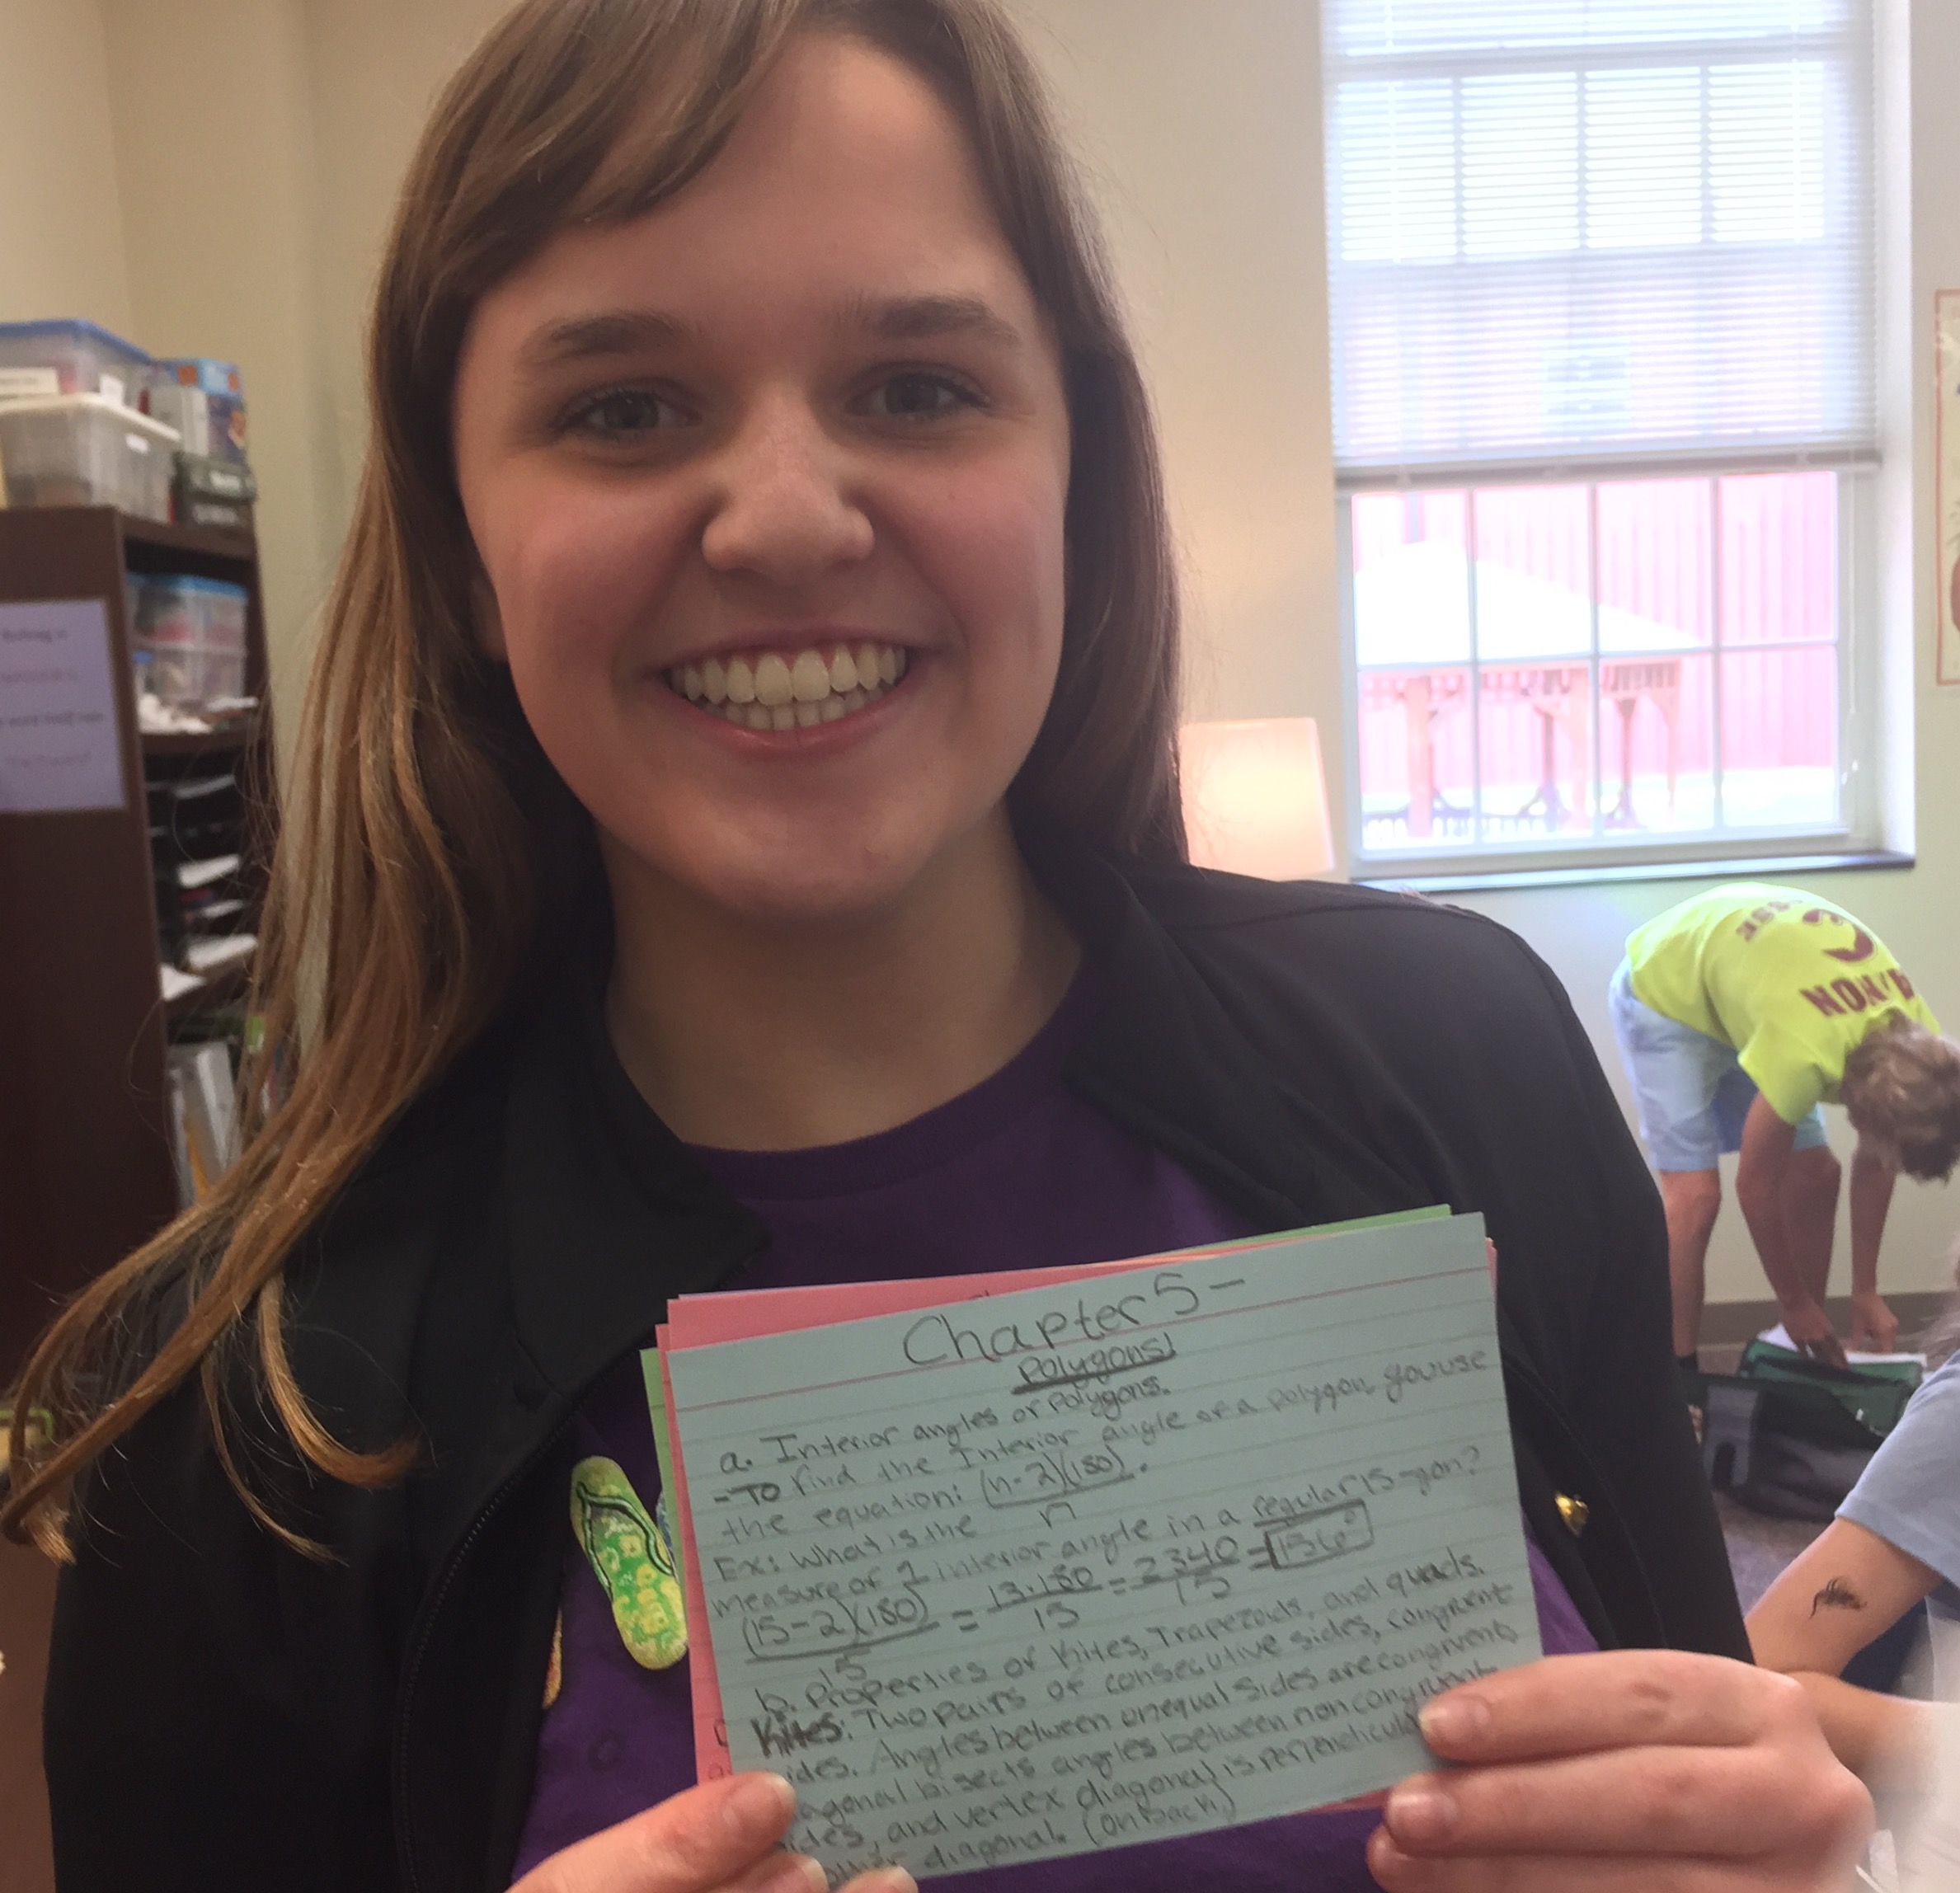 Chapter 5 -
Polygons!
a. Interior angles of polygons.
- To find the Interior angle of a polygon, you use
the equation: (n-2)(180) / n .
Ex: What is the
measure of 1 interior angle in a regular 15-gon?
(15-2)(180) / 15 = 13·180 / 15 = 2340 / 15 = 156°
b. Properties of Kites, Trapezoids, and quads.
Kites: Two pairs of consecutive sides, congruent
ides. Angles between unequal sides are congruent
agonal bisects angles between non congruent
ides, and vertex diagonal is perpendicul
other diagonal. (on back)
3